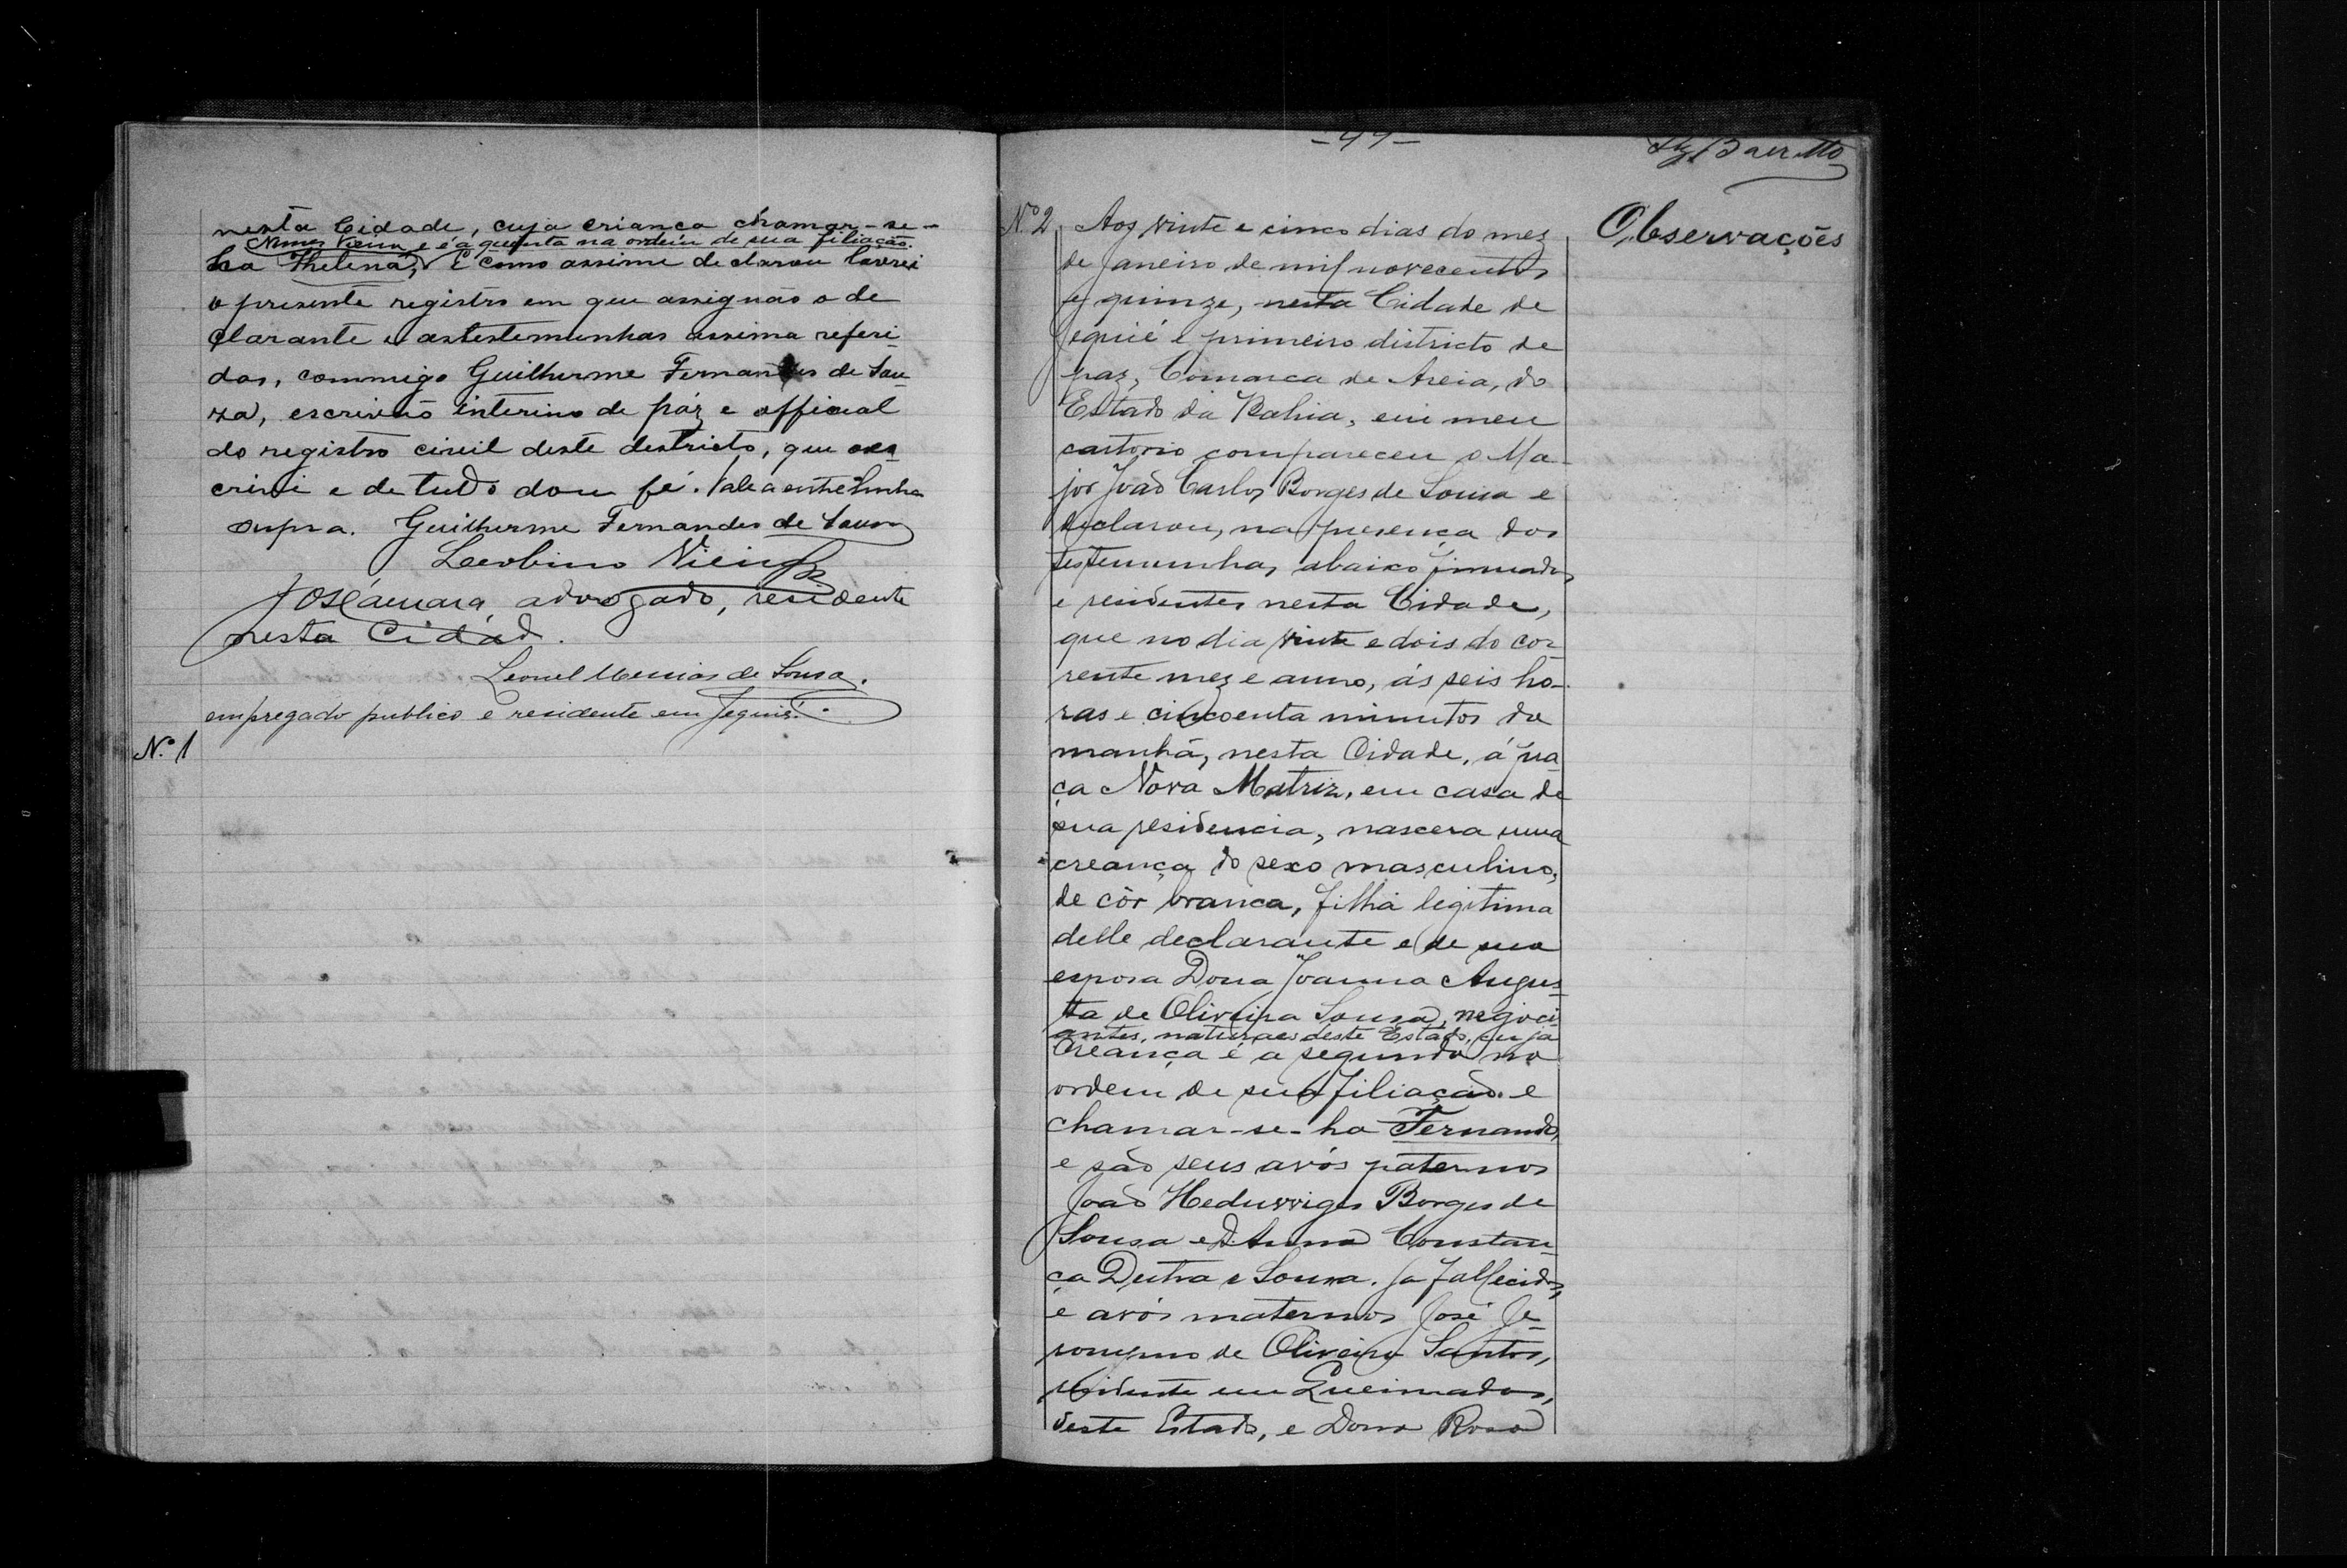 nesta Cidade, cuja criança chamar-se-
Nunes Vieira e é a quinta na ordem de sua filiação.
ha Thelena, E como assim declarou lavrei
o presente registro em que assignão o de
clarante e as testemunhas assima referi
das, commigo Guilherme Fernandes de Sou
za, escrivão interino de páz e official
do registro civil deste destricto, que es
crivi e de tudo dou fé. Vale a entrelinha
supra. Guilherme Fernandes de Souza
Leolino Vieira
J Camara, advogado, residente
nesta Cidad.
Leonel Messias de Sousa.
empregado publico e residente em Jequié.
Nº 1
-44-
Barretto
Nº 2
Observações
Aos vinte e cinco dias do mez
de Janeiro de mil novecentos
e quinze, nesta Cidade de
Jequié e primeiro districto de
paz, Comarca de Areia, do
Estado da Bahia, em meu
cartorio compareceu o Ma-
jor João Carlos Borges de Sousa e
declarou, na presença das
testemunhas abaixo firmadas
e residentes nesta Cidade,
que no dia vinte e dois do cor-
rente mez e anno, ás seis ho-
ras e cincoenta minutos da
manhã, nesta Cidade, á pra-
ça Nova Matriz, em casa de
sua residencia, nascera uma
creança do sexo masculino,
de côr branca, filha legitima
delle declarante e de sua
esposa Dona Joanna Augus-
ta de Oliveira Sousa, negoci
antes, naturaes deste Estado, cuja
Creança é a segunda na
ordem de sua filiação e
chamar-se-ha Fernando,
e são seus avós paternos
João Heduwiges Borges de
Sousa e D. Anna Constan-
ça Dutra e Sousa. ja fallecidos,
e avós maternos José Je-
ronymo de Oliveira Santos,
residente em Queimadas,
deste Estado, e Dona Rosa